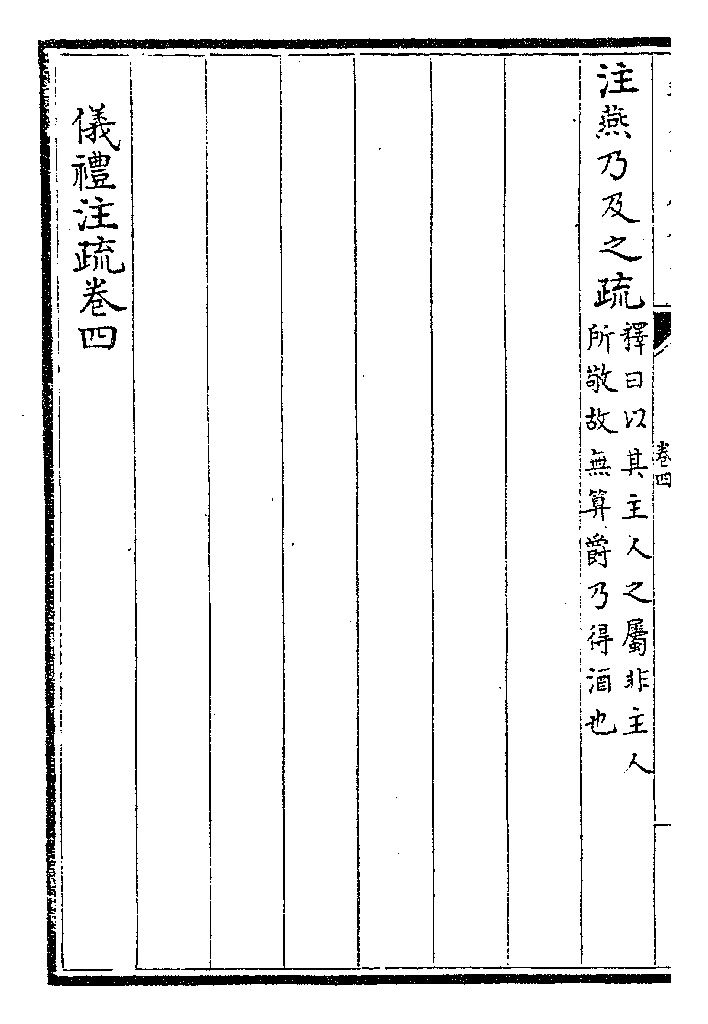 注燕乃及之疏釋曰以其主人之屬非主人
所敬故無算爵乃得酒也
儀禮注疏卷四
卷四